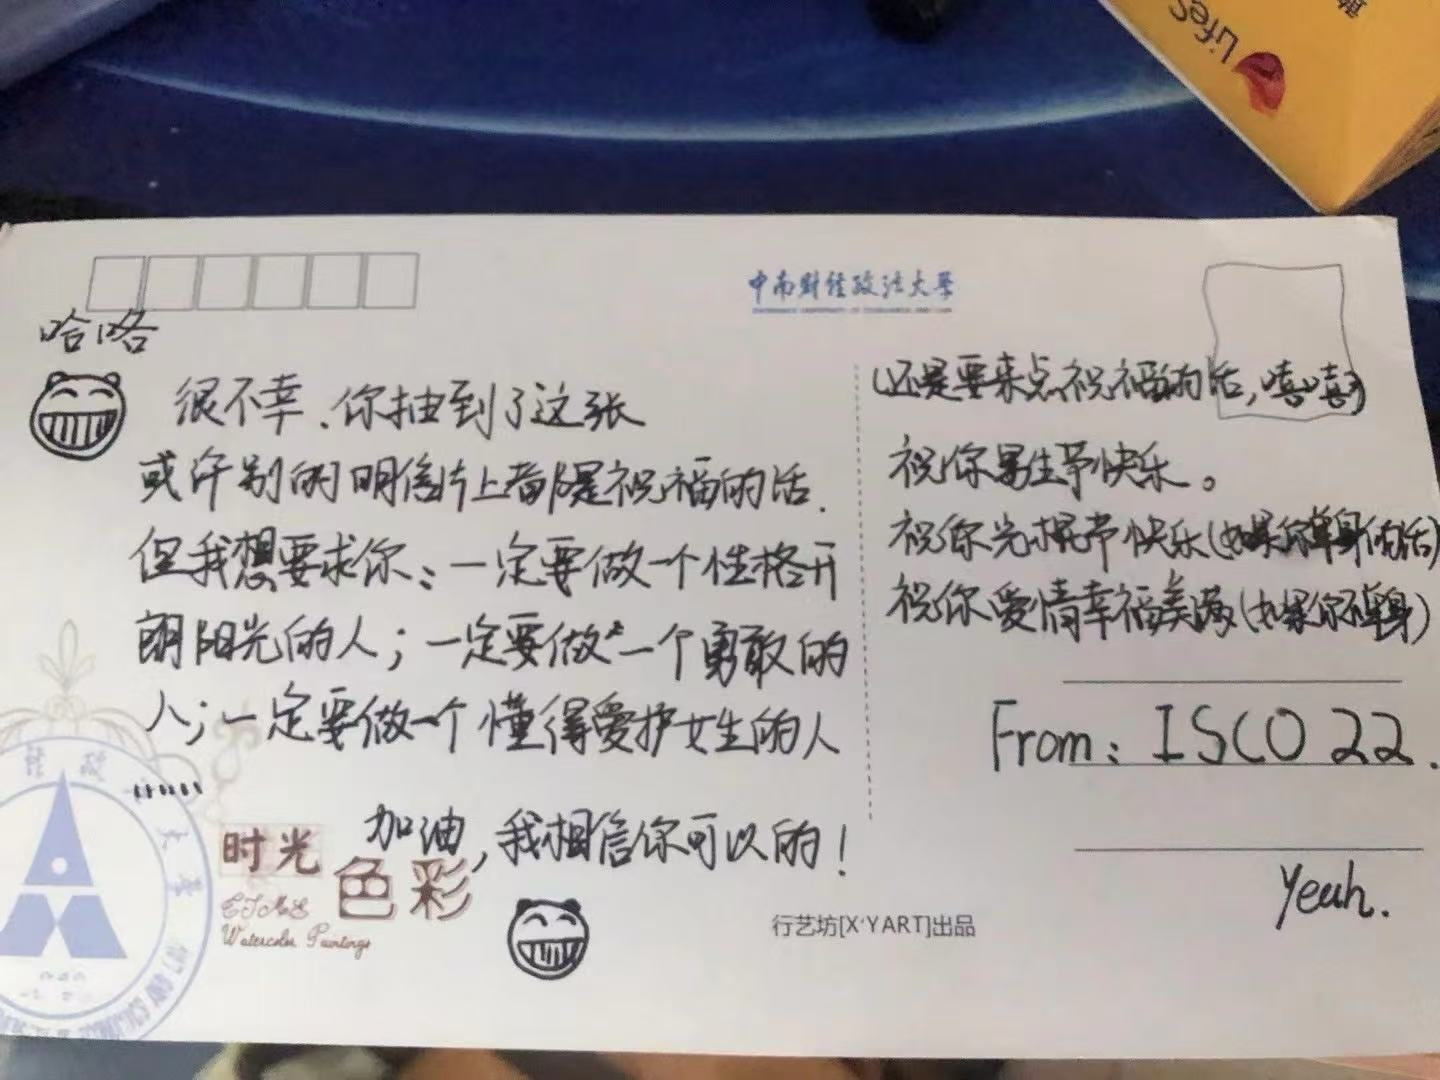 LifeS
中南财经政法大学
哈咯
很不幸、你抽到了这张
或许别的明信片上都是祝福的话.
但我想要求你:一定要做一个性格开
朗阳光的人;一定要做一个勇敢的
人;一定要做一个懂得爱护女生的人
......
加油,我相信你可以的!
(还是要来点祝福的话,嘻嘻)
祝你男生节快乐。
祝你光棍节快乐(如果你单身的话)
祝你爱情幸福美满(如果你不单身)
From: ISCO 22.
Yeah.
时光
色彩
Watercolor Paintings
行艺坊[X'YART]出品